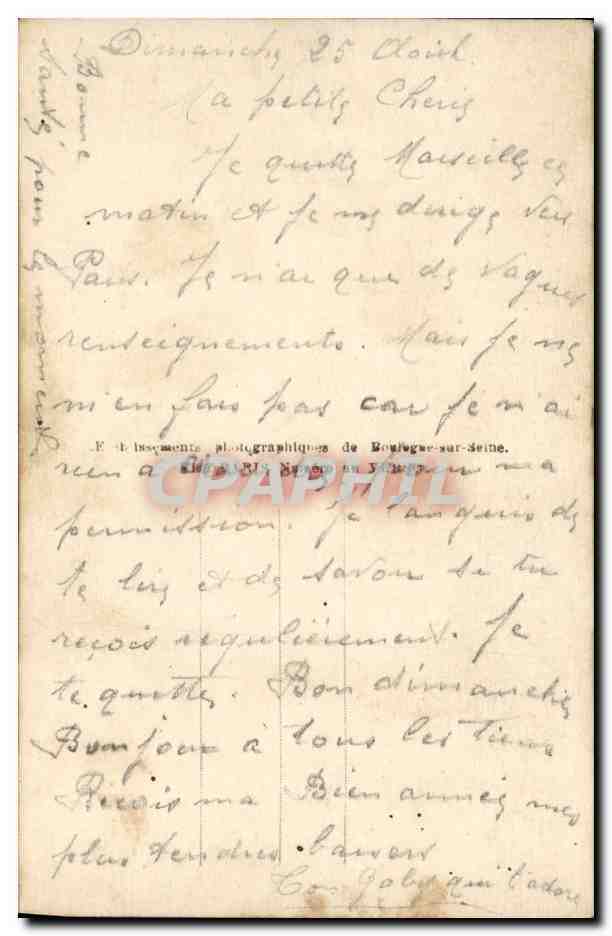 Dimanche 25 Août
Ma petite Cherie
Je quitte Marseille ce
matin et je me dirige vers
Paris. Je n'ai que de vagues
renseignements. Mais je ne
m'en fais pas car je n'ai
Etablissements photographiques de Boulogne-sur-Seine.
rien à ma
PARIS Numéro au Verso
permission. Je languis de
te lire et de savoir si tu
reçois régulièrement. Je
te quitte. Bon dimanche
Bonjour à tous les tiens
Reçois ma Bien aimée mes
plus tendres baisers
Ton Gaby qui t'adore
Bonne
santé pour le moment
CPAPHIL